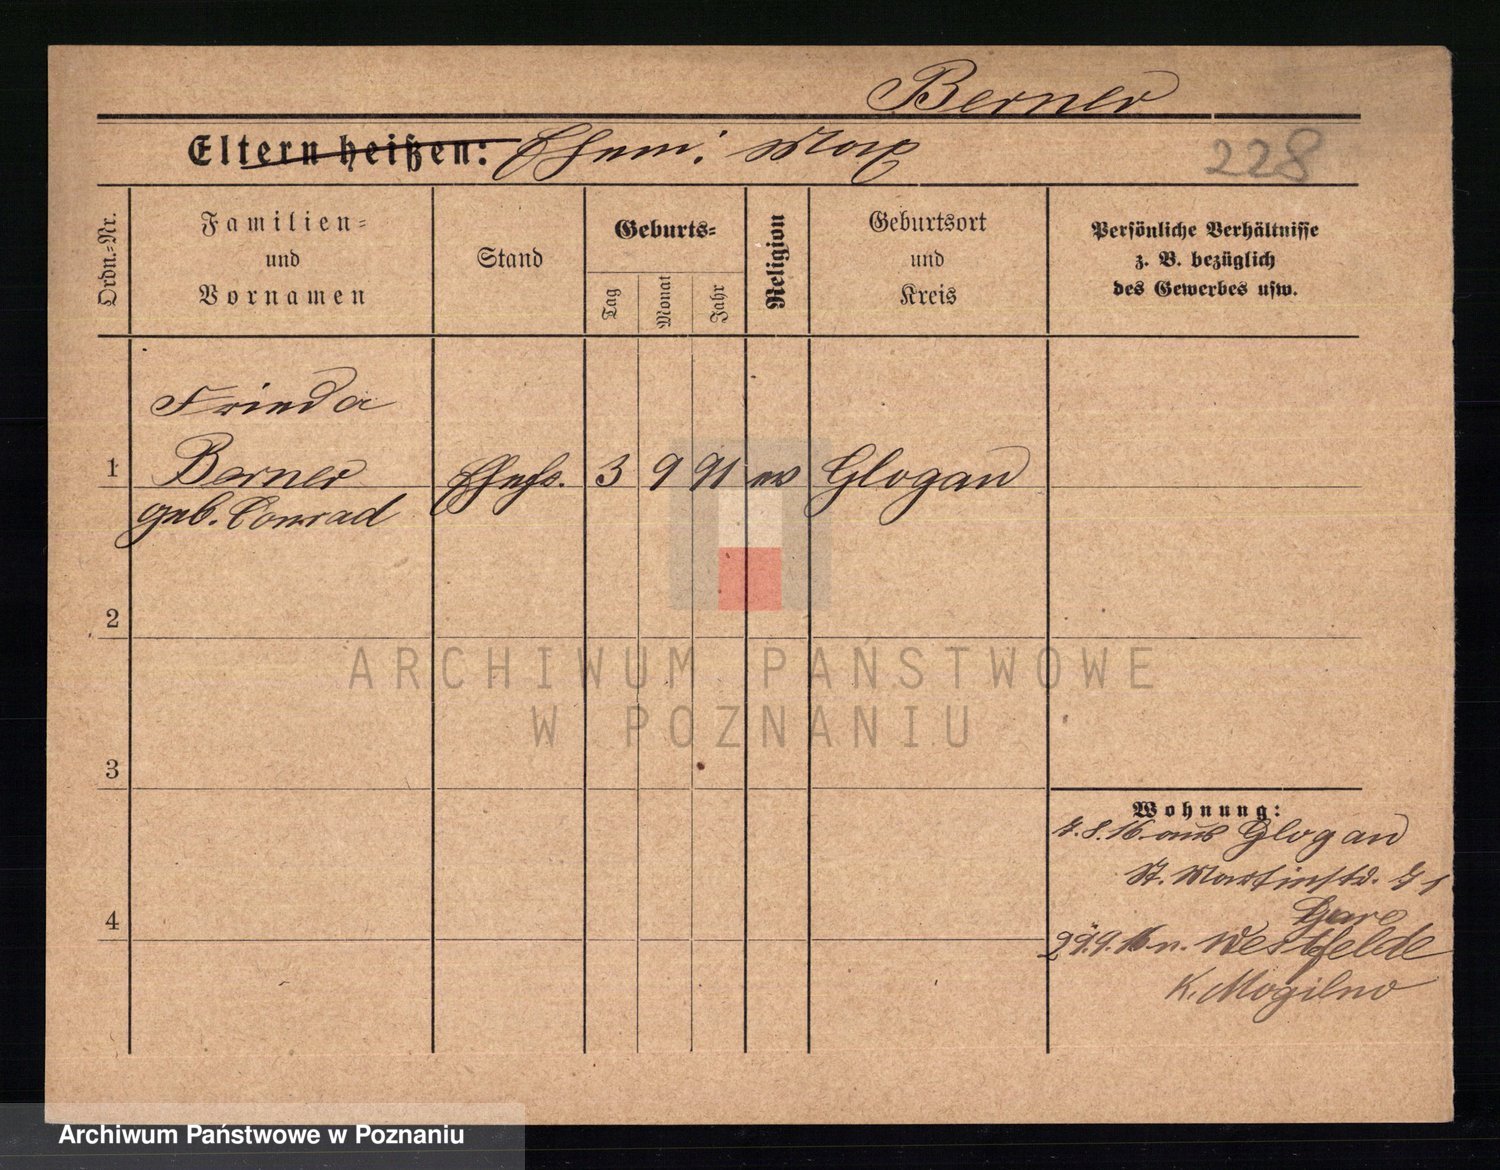 Berner
Eltern heißen: Ehem: Max
228
Ordn.-Nr.
Familien-
und
Vornamen
Stand
Geburts-
Tag
Monat
Jahr
Religion
Geburtsort
und
Kreis
Persönliche Verhältnisse
z. B. bezüglich
des Gewerbes usw.
Frieda
1 Berner Ehefr. 3 9 91 ev Glogau
geb. Conrad
2
3
4
Wohnung:
8.16 aus Glogau
St. Martinstr.
29.9.16 n. Westfelde
K. Mogilno
ARCHIWUM PAŃSTWOWE
W POZNANIU
Archiwum Państwowe w Poznaniu